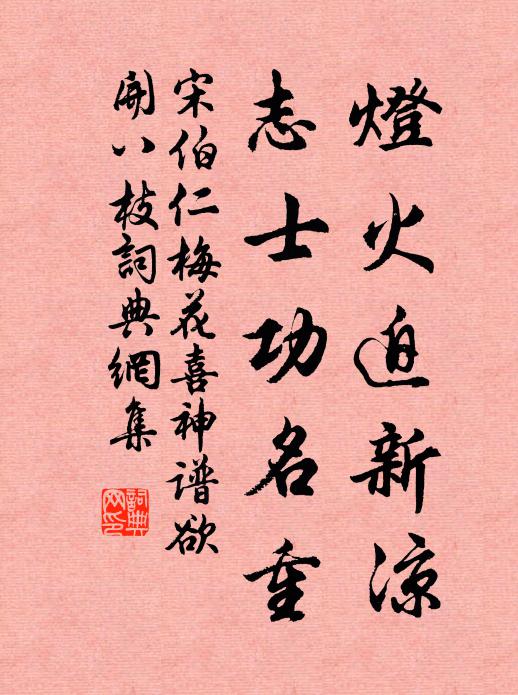 燈火迫新涼
志士功名重
宋伯仁梅花喜神譜欲
開八枝詞典網集
詞典網印